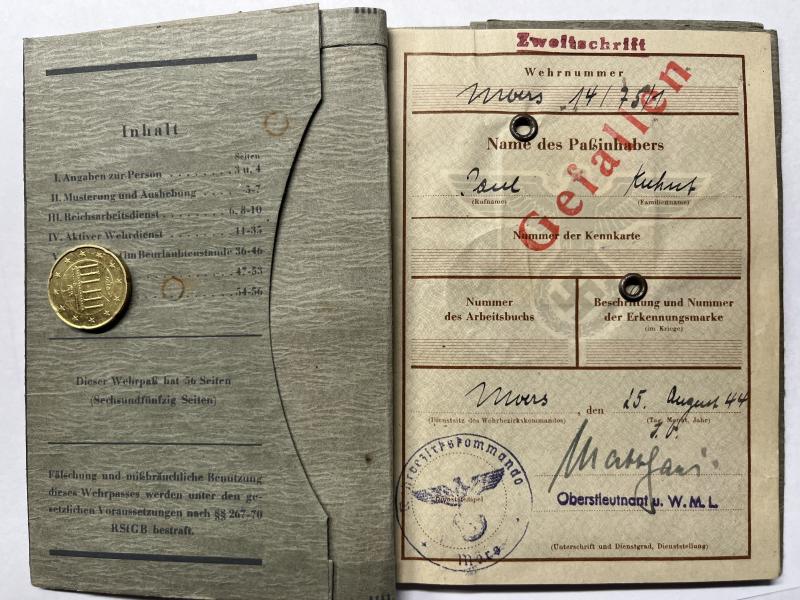 Inhalt
Seiten
I. Angaben zur Person . . . . . . . . 3 u. 4
II. Musterung und Aushebung . . . . 5-7
III. Reichsarbeitsdienst . . . . . . . 6, 8-10
IV. Aktiver Wehrdienst . . . . . . . 11-35
V. im Beurlaubtenstande 36-46
47-53
54-56
Dieser Wehrpaß hat 56 Seiten
(Sechsundfünfzig Seiten)
Fälschung und mißbräuchliche Benutzung
dieses Wehrpasses werden unter den ge-
setzlichen Voraussetzungen nach §§ 267-70
RStGB bestraft.
Zweitschrift
Wehrnummer
Moers 14/75/1
Gefallen
Name des Paßinhabers
Paul Kuhnt
(Rufname) (Familienname)
Nummer der Kennkarte
Nummer Beschriftung und Nummer
des Arbeitsbuchs der Erkennungsmarke
(im Kriege)
Moers, den 25. August 44
(Dienstsitz des Wehrbezirkskommandos) (Tag, Monat, Jahr)
Wehrbezirkskommando
(Dienststempel)
Moers
Oberstleutnant u. W.M.L.
(Unterschrift und Dienstgrad, Dienststellung)